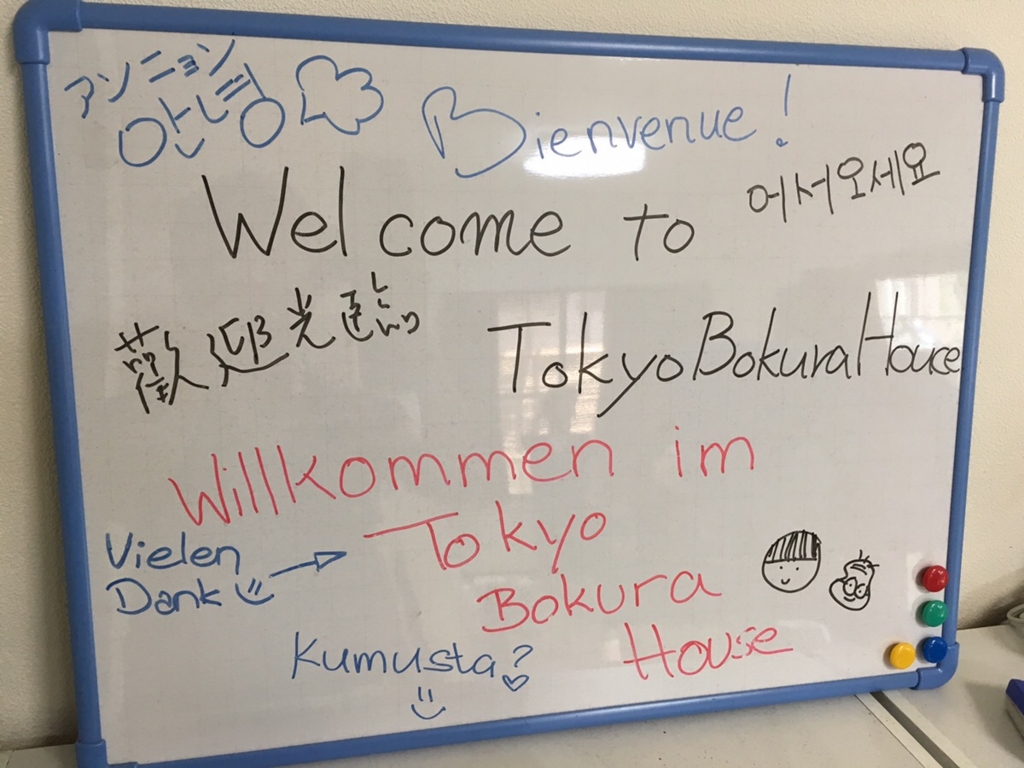 アンニョン
안녕
Bienvenue!
Welcome to
어서오세요
歡迎光臨
Tokyo Bokura House
Willkommen im
Tokyo
Bokura
House
Vielen
Dank
Kumusta?